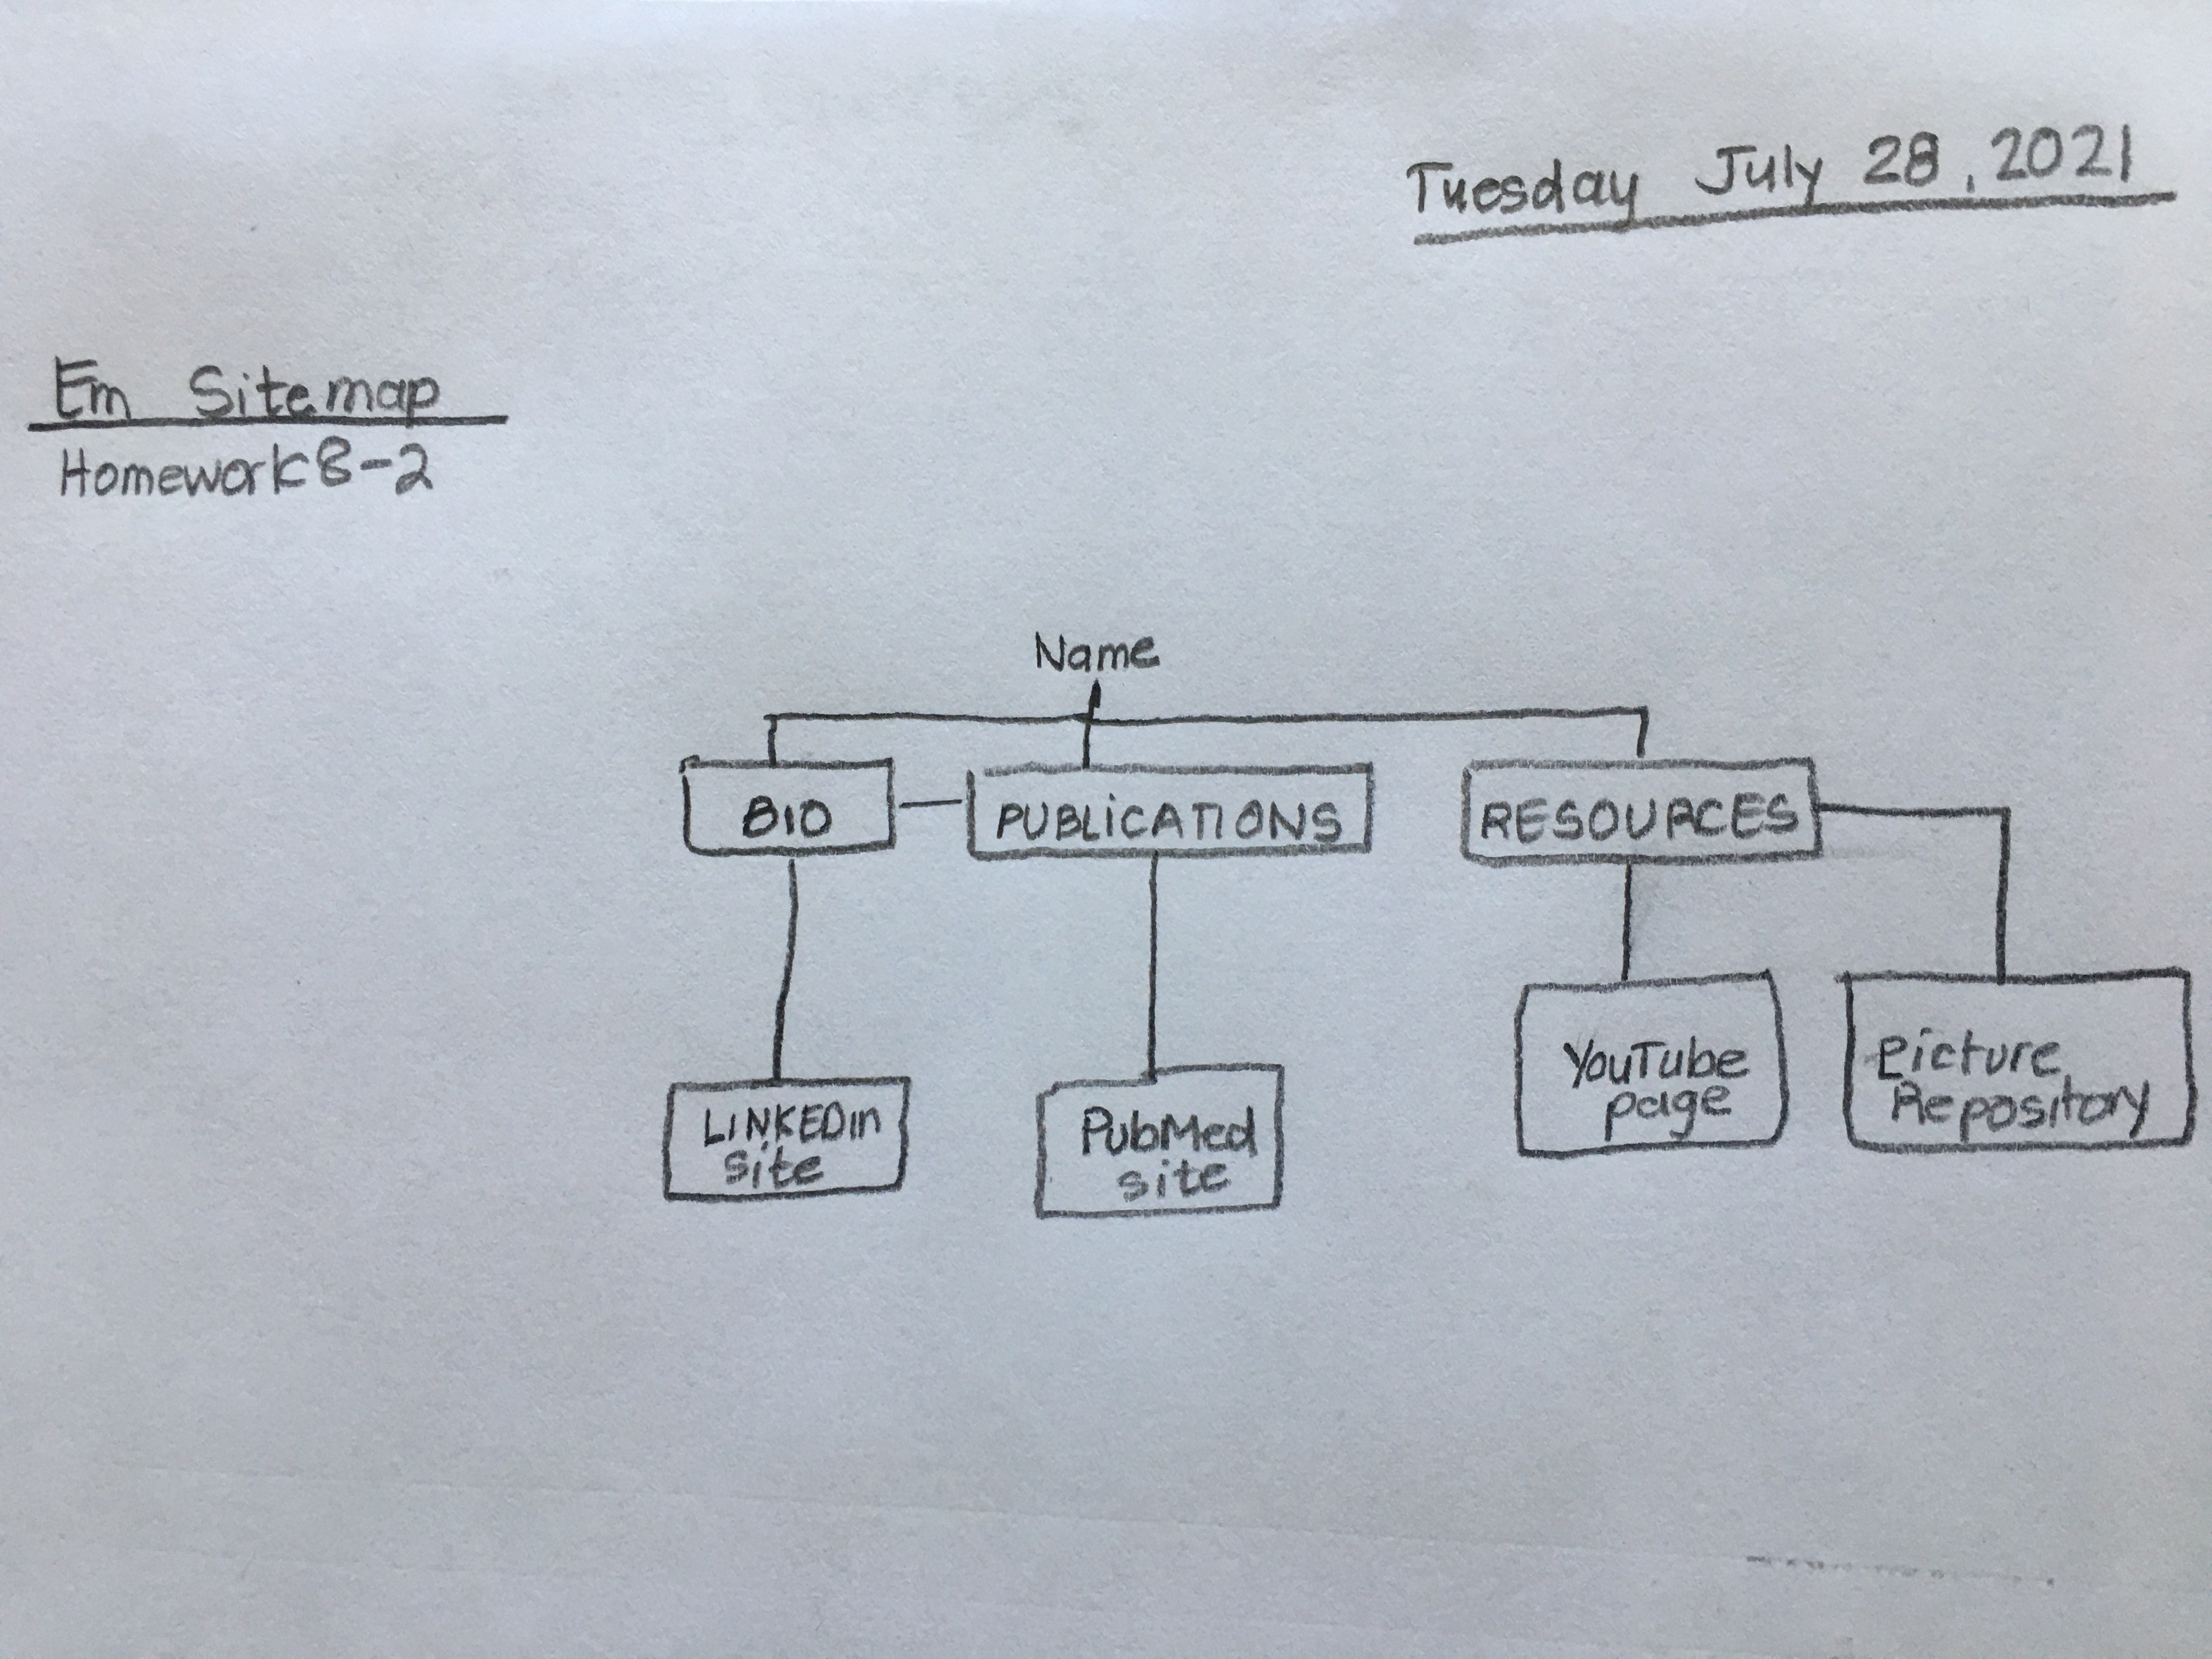 Tuesday July 28, 2021
Em Sitemap
Homework 8-2
Name
BIO
PUBLICATIONS
RESOURCES
LINKEDin
site
PubMed
site
YouTube
page
Picture
Repository